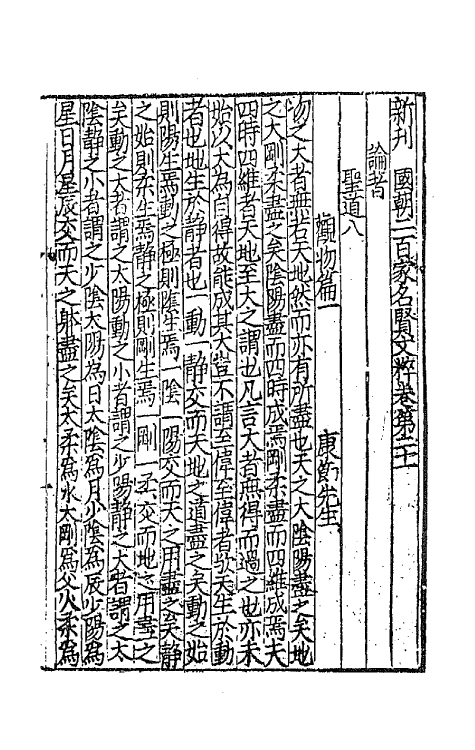 新刊 國朝二百家名賢文粹卷第二十
論著
聖道八
觀物篇一 康節先生
物之大者無若天地然而亦有所盡也天之大陰陽盡之矣地
之大剛柔盡之矣陰陽盡而四時成焉剛柔盡而四維成焉夫
四時四維者天地至大之謂也凡言大者無得而過之也亦未
始以大為自得故能成其大豈不謂至偉至偉者歟天生於動
者也地生於静者也一動一静交而天地之道盡之矣動之始
則陽生焉動之極則隂生焉一隂一陽交而天之用盡之矣静
之始則柔生焉静之極則剛生焉一剛一柔交而地之用盡之
矣動之大者謂之太陽動之小者謂之少陽静之大者謂之太
陰静之小者謂之少陰太陽為日太陰為月少陰為辰少陽為
星日月星辰交而天之躰盡之矣太柔為水太剛為火少柔為